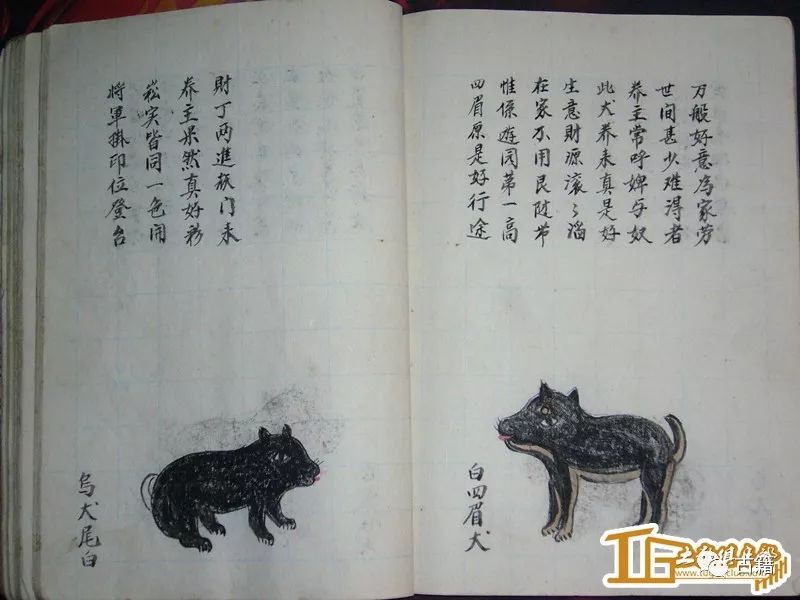 万般好意為家劳
世间甚少难得者
养主常呼婢与奴
此犬养来真是好
生意財源滚々滔
在家不用艮随带
惟係遊园第一高
四眉原是好行途
白四眉犬
財丁两進门来
养主果然真好彩
菘实皆同一色
將軍掛印位登台
乌犬尾白
古籍